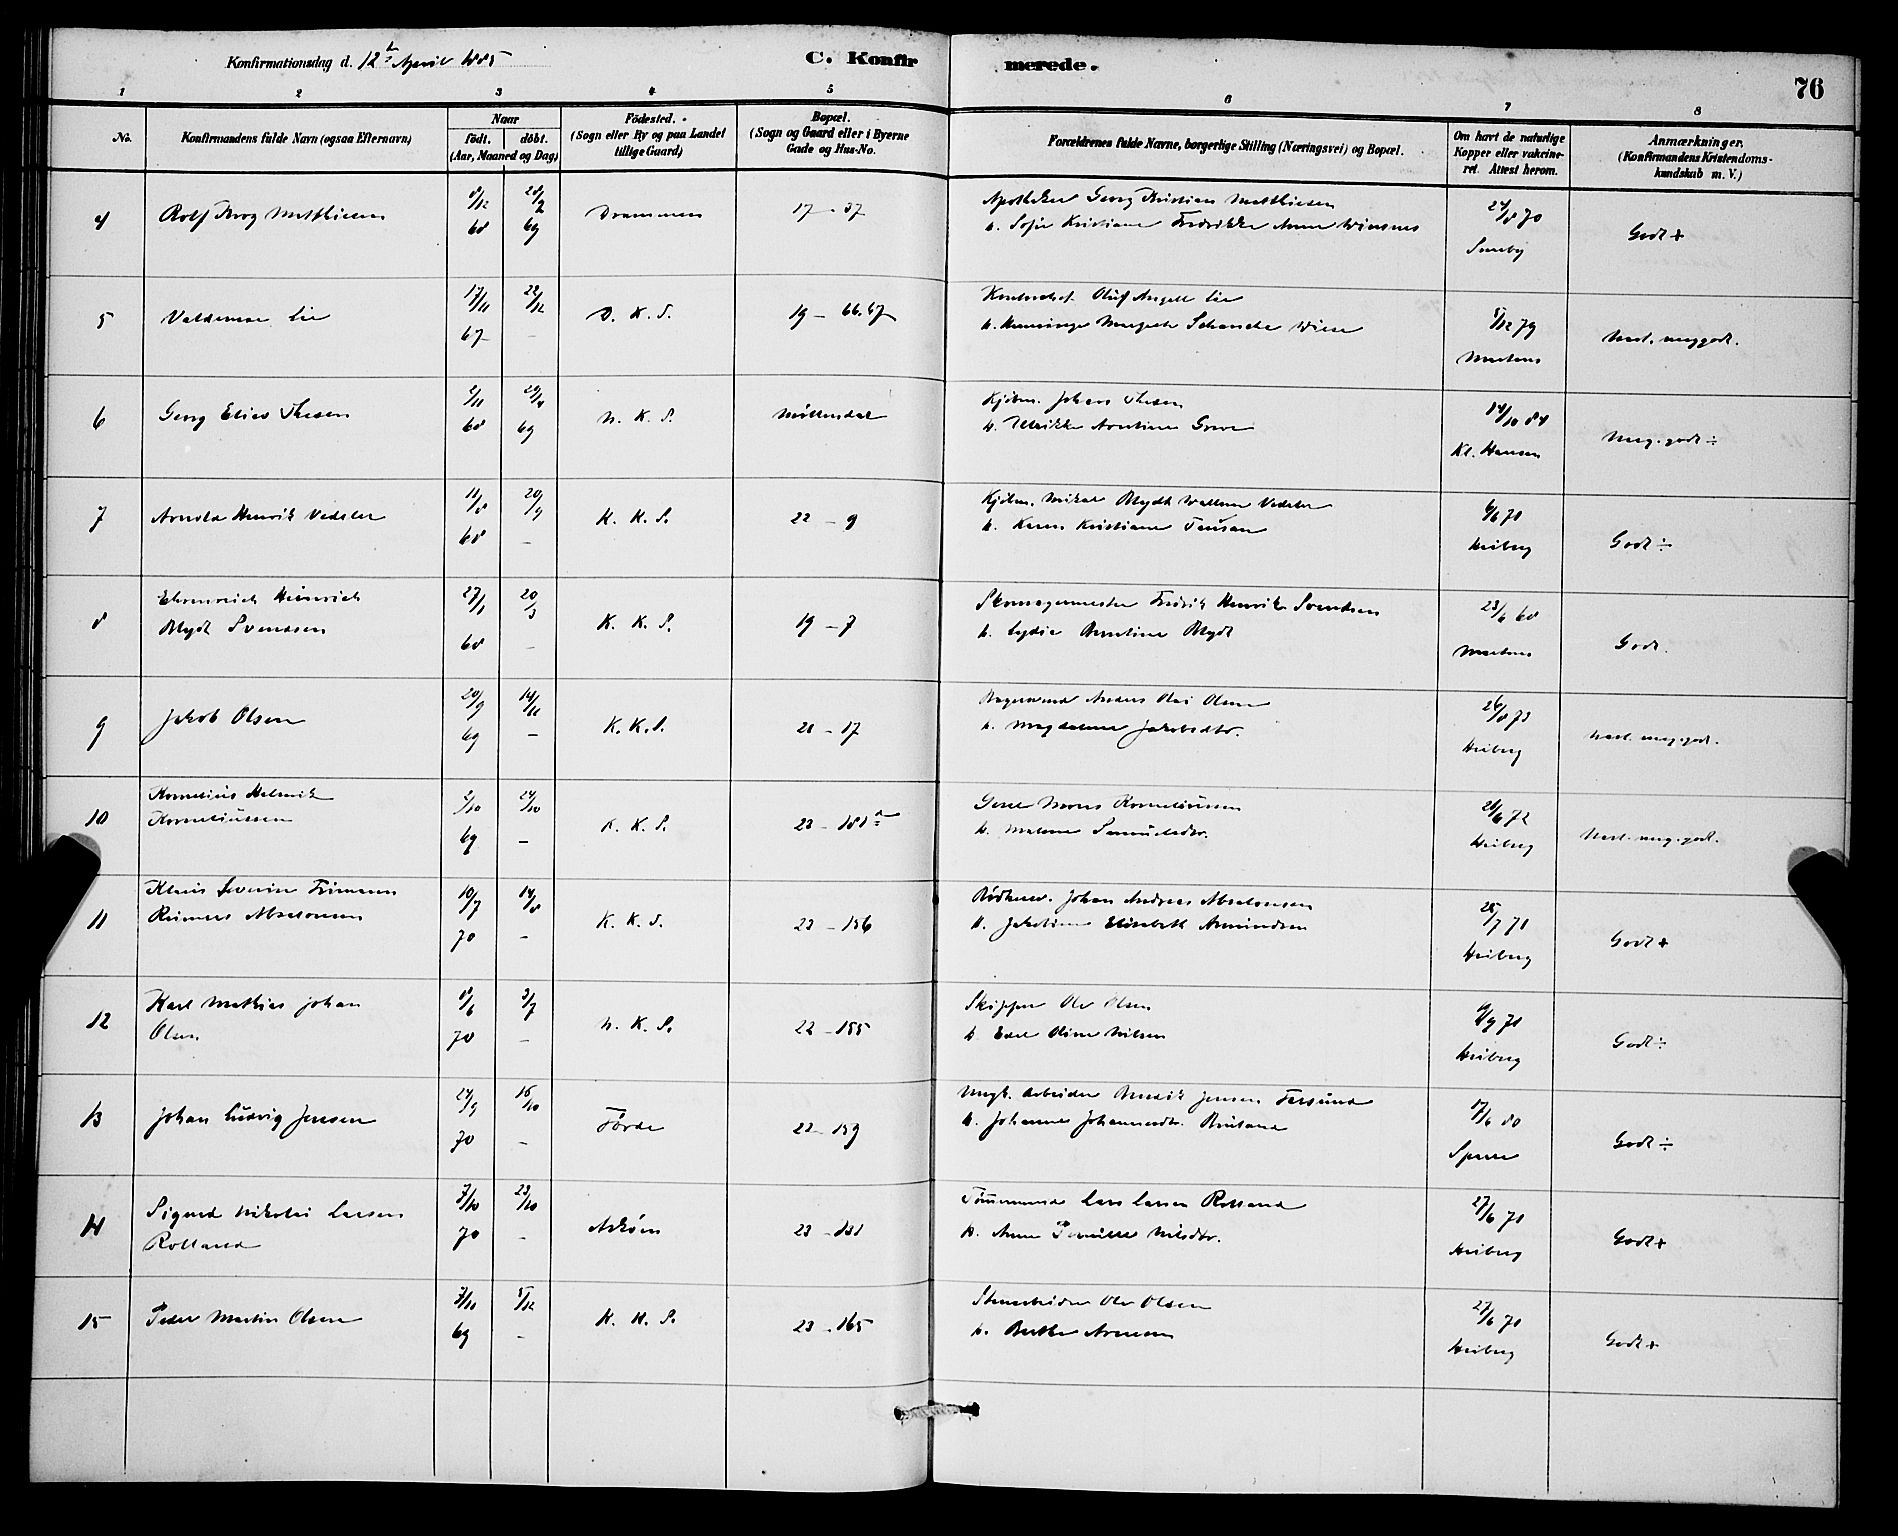 Konfirmationsdag d. 12te April 1885
C. Konfirmerede.
76
1 2 3 4 5 6 7 8
No.
Konfirmandens fulde Navn (ogsaa Efternavn)
Naar
födt. döbt.
(Aar, Maaned og Dag)
Födested.
(Sogn eller By og paa Landet
tillige Gaard)
Bopæl.
(Sogn og Gaard eller i Byerne
Gade og Hus-No.
Forældrenes fulde Navne, borgerlige Stilling (Næringsvei) og Bopæl.
Om havt de naturlige
Kopper eller vakcine-
ret. Attest herom.
Anmærkninger.
(Konfirmandens Kristendoms-
kundskab m. V.)
4 Rolf Mathiesen 8/12 68 28/2 69 Drammen 17 - 37
Apotheker Georg Kristian Mathiesen
h. Sofie Kristiane Fredrikke Anne Wiesnes
24/8 70
Godt +
5 Valdemar Lie 17/11 67 22/12 - D. K. S. 19 - 66.67
Oluf Angell Lie
h. Margrethe Schancke Wiese
8/12 79
Martens
Next. meg. godt.
6 Georg Elias Thesen 2/11 68 29/4 69 N. K. S. Möllendal
Kjöbm. Johans Thesen
h. Ulrikke Arentine Greve
14/10 84
Kl. Hansen
Meg. godt ÷
7 Arnold Henrik Vedeler 11/8 68 20/9 - K. K. S. 22 - 9
Kjöbm. Mikal Blydt Wallem Vedeler
h. Karen Kristiane Jensen
6/6 70
Heiberg
Godt ÷
8 Ehrenreich Heinrich
Blydt Svendsen
27/1 68 20/3 - K. K. S. 19 - 7
Skomagermester Fredrik Henrik Svendsen
h. Lydia Berntine Blydt
23/6 68
Martens
Godt.
9 Jakob Olsen 20/9 69 14/11 - K. K. S. 21 - 17
Bagersvend Anders Olai Olsen
h. Magdalene Jakobsdtr.
26/8 73
Heiberg
Next. meg. godt.
10 Kornelius Helmik
Korneliussen
2/10 69 24/10 - K. K. S. 23 - 181 a
Korneliussen
h. Malene Samuelsdtr.
28/6 72
Heiberg
Next. meg. godt.
11 Klaus Severin Frimann
Reimers Absalonsen
10/7 70 14/8 - K. K. S. 23 - 156
Bödker. Johan Andreas Absalonsen
h. Jakobine Elisabeth Amundsen
25/7 71
Heiberg
Godt +
12 Karl Mathias Johan
Olsen
8/6 70 3/7 - N. K. S. 22 - 155
Skipper Ole Olsen
h. Edel Oline Nilsen
6/9 71
Heiberg
Godt ÷
13 Johan Ludvig Jensen 24/9 70 16/10 - Förde 22 - 159
arbeider Jensen Farsund
h. Johanne Johannesdtr. Bruland
17/6 80
Sparre
Godt ÷
14 Sigurd Nikolai Larsen
Rolland
7/10 70 23/10 - Askøen 23 - 131
Tömmermand Lars Larsen Rolland
h. Anne Pernille Nilsdtr.
27/6 71
Heiberg
Godt +
15 Peder Martin Olsen 7/11 69 5/12 - K. K. S. 23 - 165
Stenarbeider Ole Olsen
h. Berthe Arnesen
27/6 71
Heiberg
Godt +